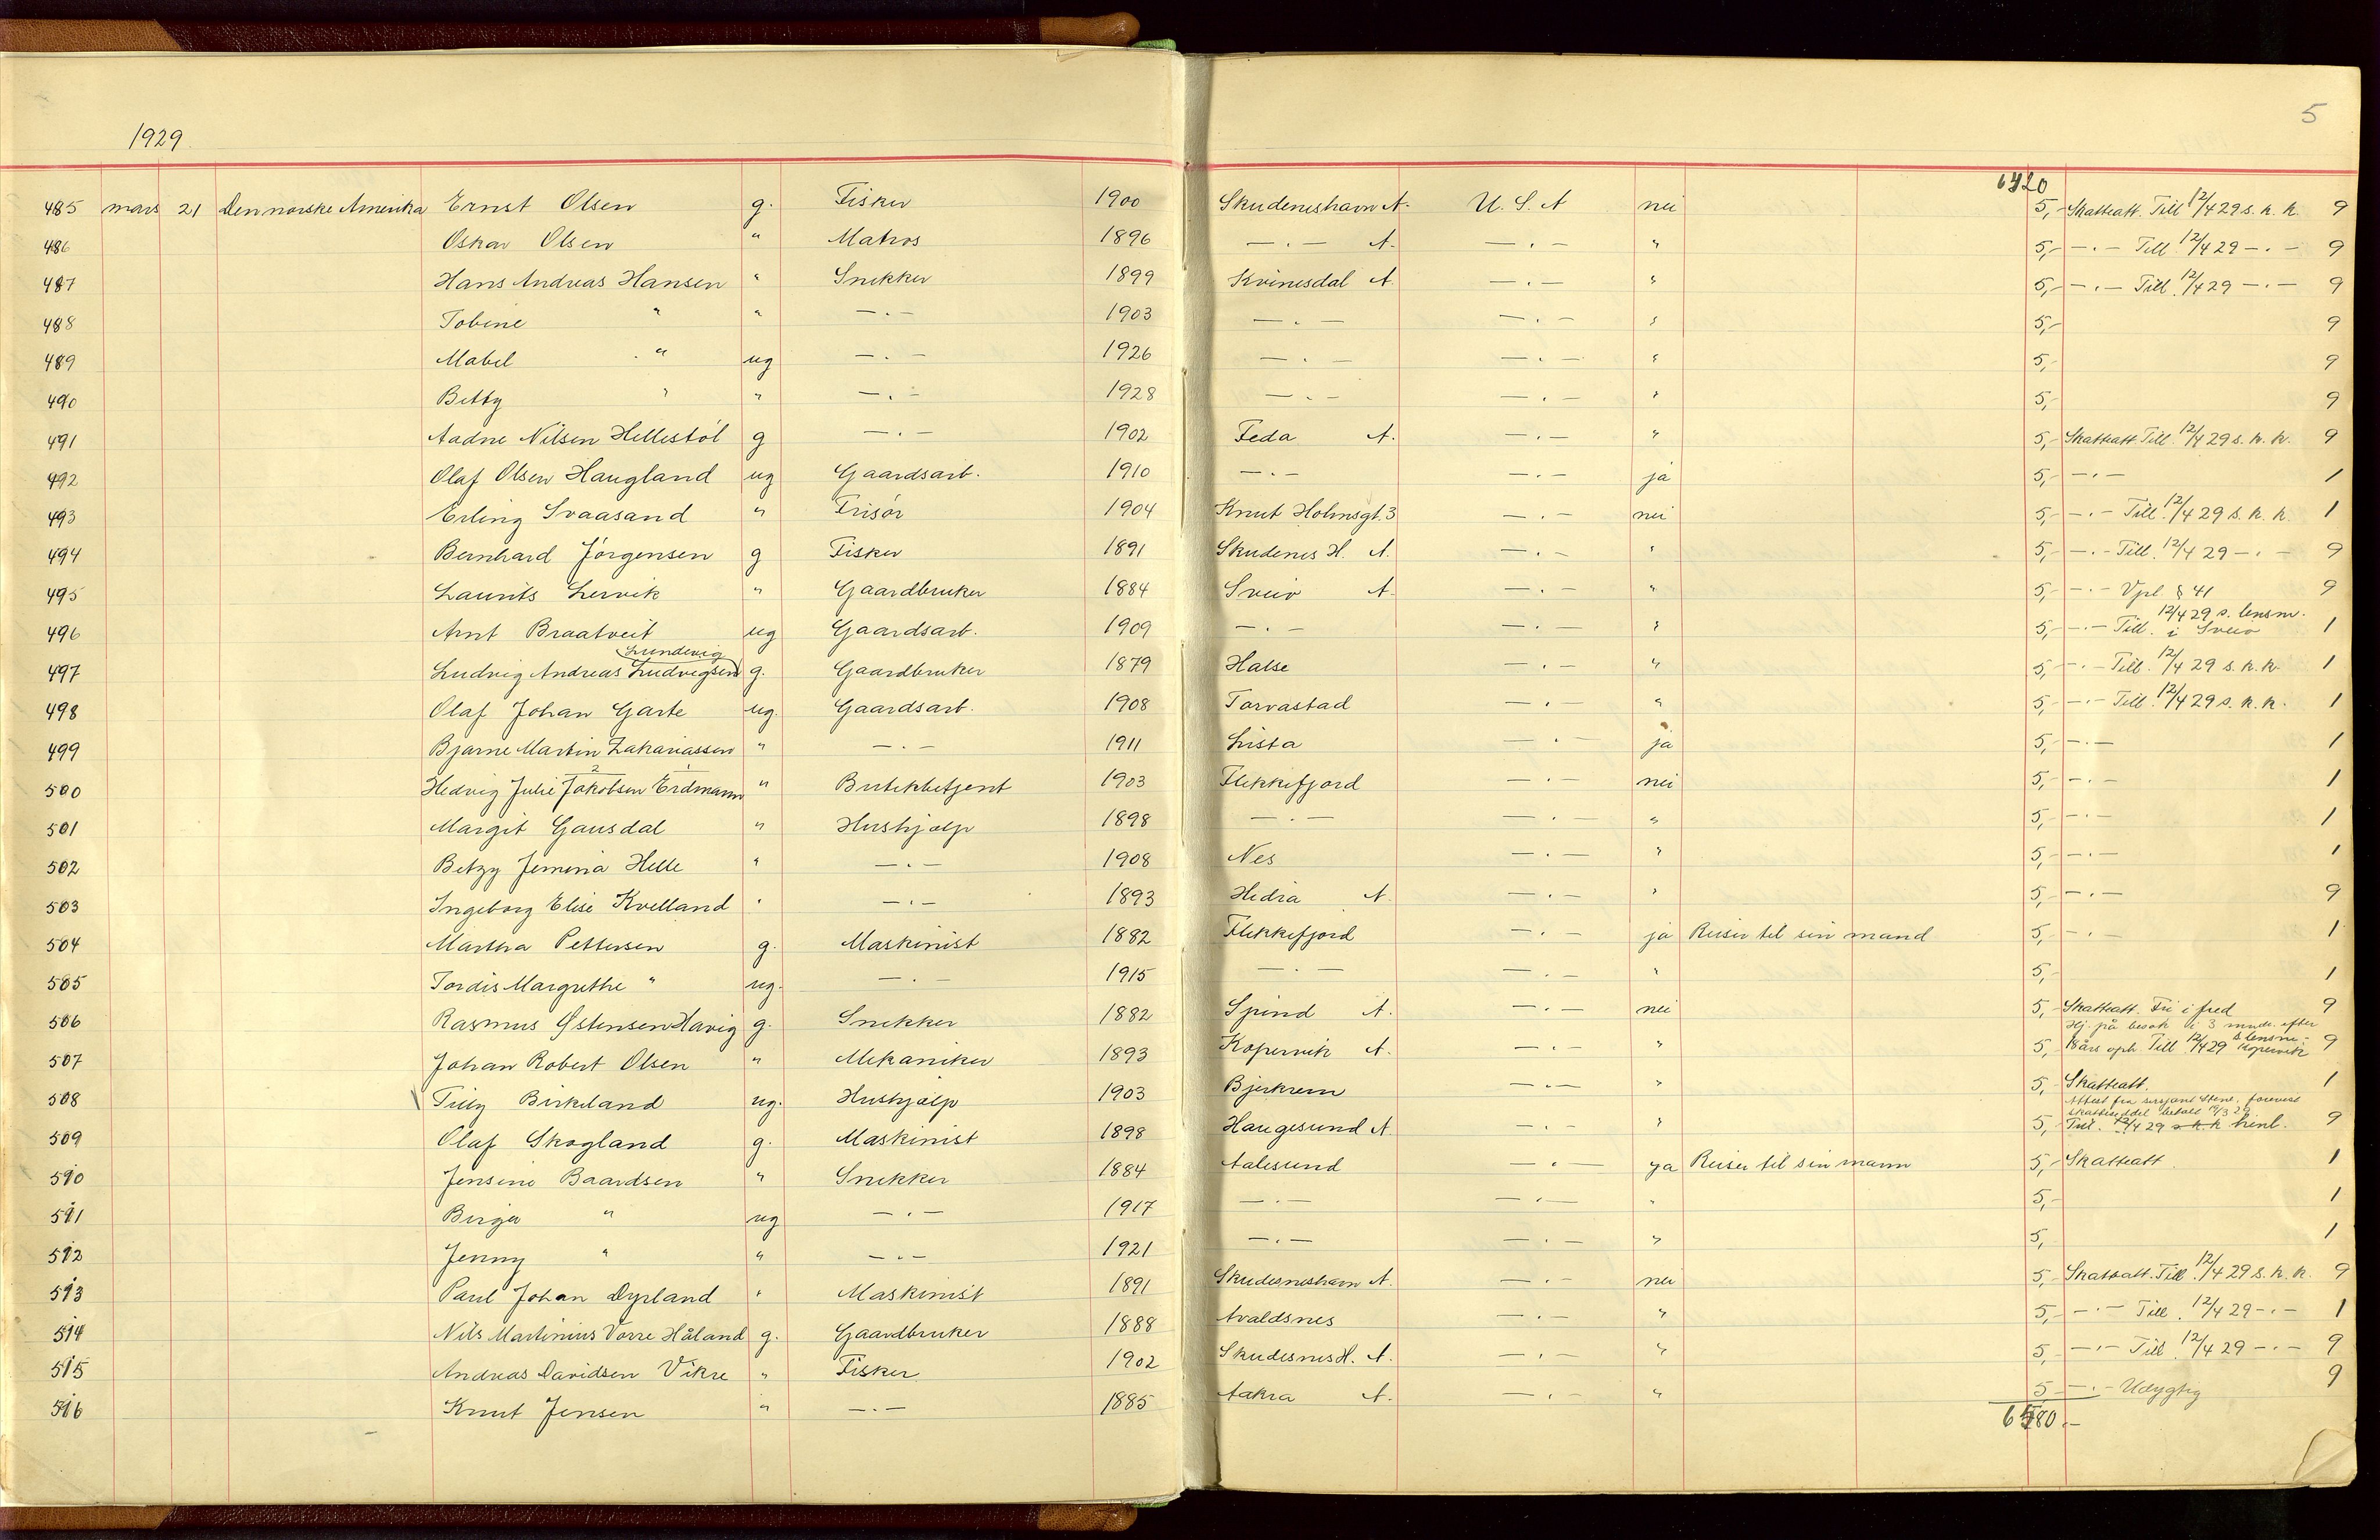 1929.
5
6420
485 mars 21 Den norske Amerika Ernst Olsen g. Fisker 1900 Skudeneshavn A. U. S. A nei 5,- Skatteatt. Till. 12/4 29 s. k. k. 9
486 Oskar Olsen " Matros 1896 —.— A. —.— " 5,- —.— Till. 12/4 29 —.— 9
487 Hans Andreas Hansen " Snekker 1899 Kvinesdal A. —.— " 5,- —.— Till. 12/4 29 —.— 9
488 Tobine " " —.— 1903 —.— —.— " 5,- 9
489 Mabel " ug —.— 1926 —.— —.— " 5,- 9
490 Betty " " —.— 1928 —.— —.— " 5,- 9
491 Aadne Nilsen Hellestøl g —.— 1902 Feda A. —.— " 5,- Skatteatt Till. 12/4 29 s. k. k. 9
492 Olaf Olsen Haugland ug Gaardsarb. 1910 —.— —.— ja 5,- —.— 1
493 Erling Svaasand " Frisør 1904 Knut Holmsgt. 3 —.— nei 5,- —.— Till. 12/4 29 s. k. k. 1
494 Bernhard Jørgensen g Fisker 1891 Skudenes H. A. —.— " 5,- —.— Till. 12/4 29 —.— 9
495 Laurits Lervik " Gaardbruker 1884 Sveio A. —.— " 5,- —.— Vpl § 41 9
496 Arnt Braatveit ug Gaardsarb. 1909 —.— —.— " 5,- —.— Till. 12/4 29 s. lensm. i Sveio 1
Lundevig
497 Ludvig Andreas Ludvigsen g. Gaardbruker 1879 Halse —.— " 5,- —.— Till. 12/4 29 s. k. k. 1
498 Olaf Johan Garte ug. Gaardsarb. 1908 Torvastad —.— " 5,- —.— Till. 12/4 29 s. k. k. 1
499 Bjarne Martin Zakariassen " —.— 1911 Lista —.— ja 5,- —.— 1
2 1
500 Hedvig Julie Jakobsen Erdmann " Butikkbetjent 1903 Flekkefjord —.— nei 5,- —.— 1
501 Margit Gausdal " Hushjælp 1898 —.— —.— " 5,- —.— 1
502 Betzy Jemina Helle " —.— 1908 Nes —.— " 5,- —.— 1
503 Ingeborg Elise Kvelland " —.— 1893 Hidra A. —.— " 5,- —.— 9
504 Martha Pettersen g. Maskinist 1882 Flekkefjord —.— ja Reiser til sin mand 5,- —.— 1
505 Tordis Margrethe " ug. —.— 1915 —.— —.— " 5,- 1
506 Rasmus Østensen Havig g. Snekker 1882 Spind A. —.— nei 5,- Skatteatt. Fri i fred 9
Hj. på besøk i 3 mndr. efter
507 Johan Robert Olsen " Mekaniker 1893 Kopervik A. —.— " 5,- 18 års oph. Till. 12/4 29 s lensm. Kopervik 9
508 Tilly Birkeland ug. Hushjælp 1903 Bjerkrem —.— " 5,- Skatteatt. 1
Attest fra sersjant Stene, forevist
skatteseddel betalt /3 29
509 Olaf Skogland g. Maskinist 1898 Haugesund A. —.— " 5,- Till. 12/4 29 s. k. k henl. 9
510 Jensine Baardsen " Snekker 1884 Aalesund —.— ja Reiser til sin mann 5,- Skatteatt. 1
511 Birger " ug —.— 1917 —.— —.— " 5,- 1
512 Jenny " " —.— 1921 —.— —.— " 5,- 1
513 Paul Johan Dyrland " Maskinist 1891 Skudesneshavn A. —.— nei 5,- Skatteatt. Till. 12/4 29 s. k. k. 9
514 Nils Martinius Vorre Håland g. Gaardbruker 1888 Avaldsnes —.— " 5,- —.— Till. 12/4 29 —.— 1
515 Andreas Davidsen Vikre " Fisker 1902 Skudesnes H. A. —.— " 5,- —.— Till. 12/4 29 —.— 9
516 Knut Jensen " —.— 1885 Aakra A. —.— " 5,- —.— Udygtig 9
6580.-